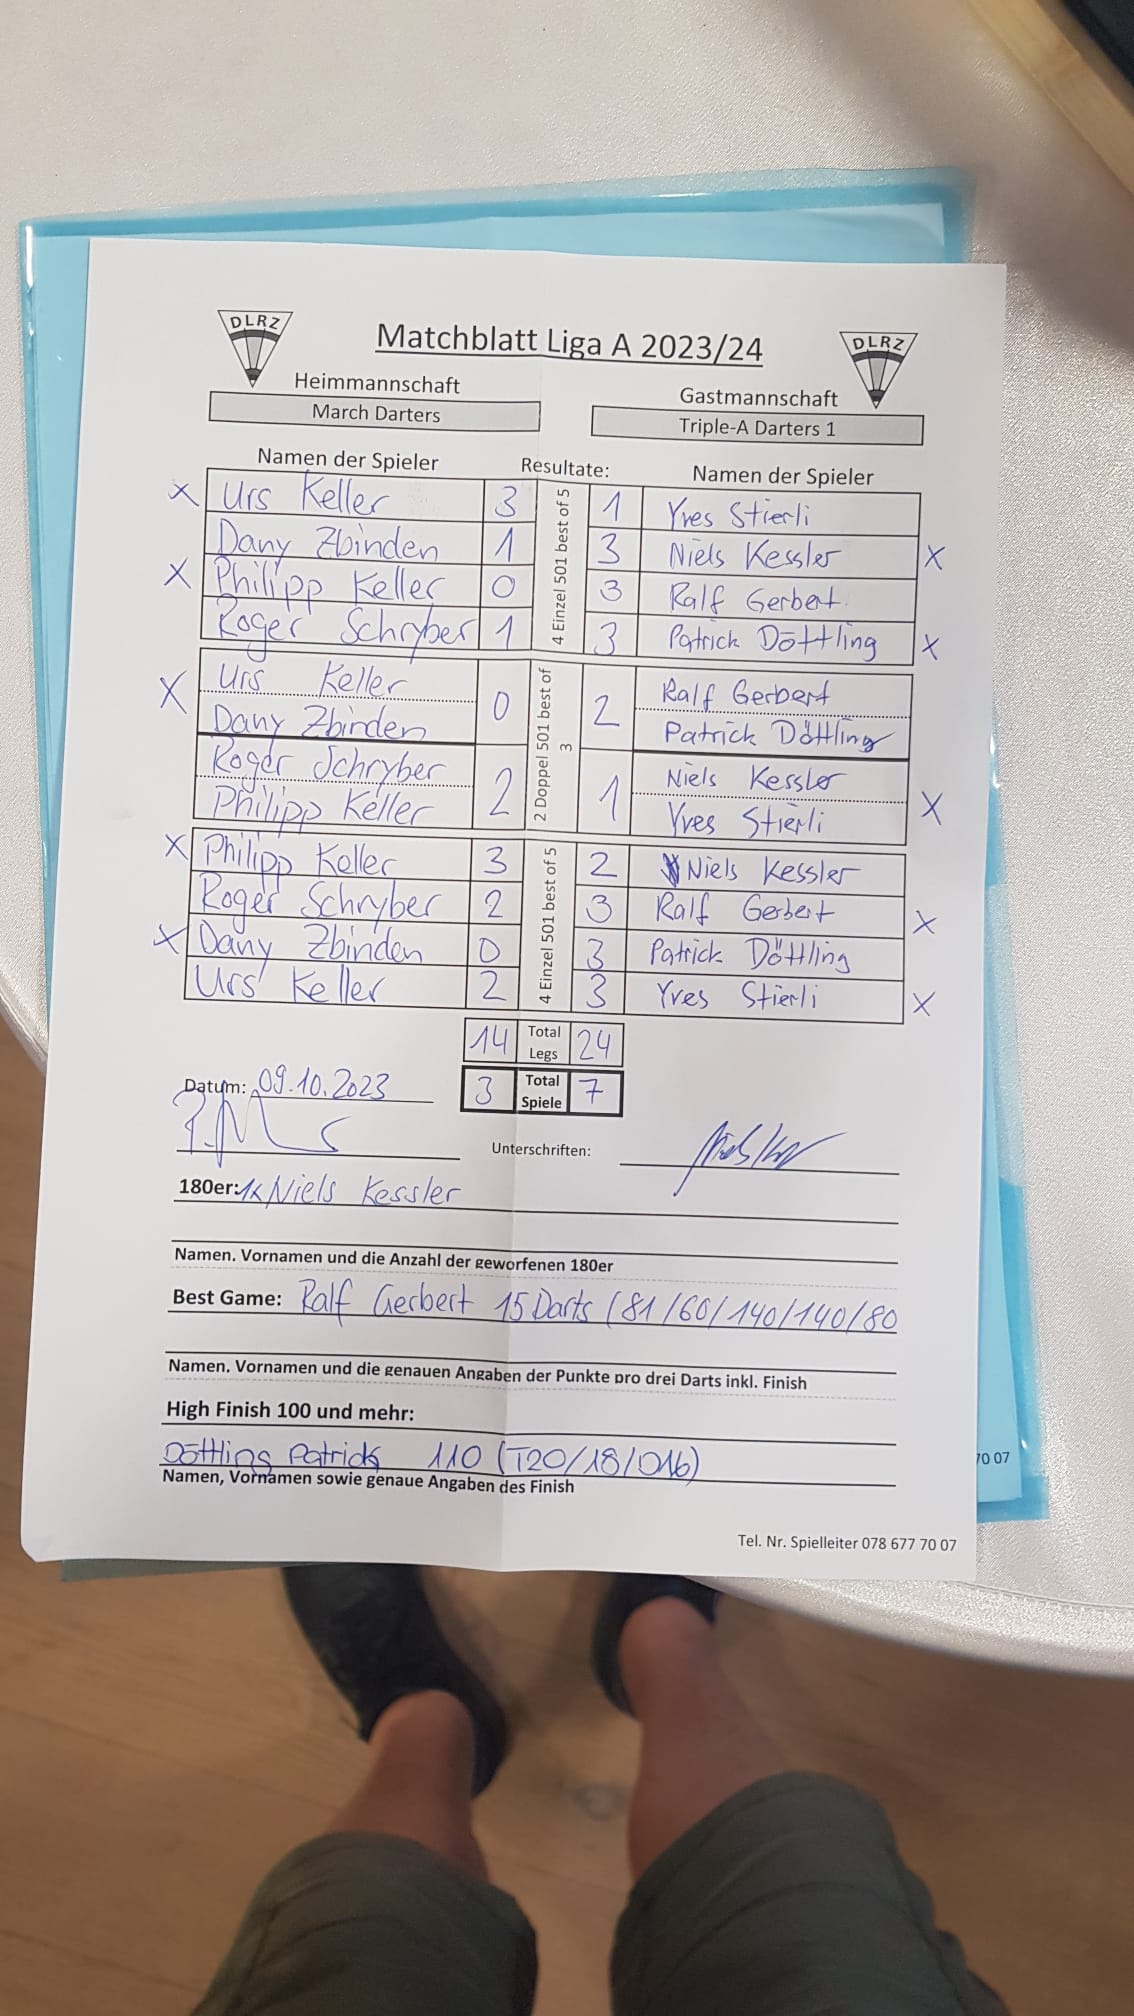 DLRZ
Matchblatt Liga A 2023/24
DLRZ
Heimmannschaft
Gastmannschaft
March Darters
Triple-A Darters 1
Namen der Spieler
Resultate:
Namen der Spieler
4 Einzel 501 best of 5
X Urs Keller 3 1 Yves Stierli
Dany Zbinden 1 3 Niels Kessler X
X Philipp Keller 0 3 Ralf Gerbert
Roger Schryber 1 3 Patrick Döttling X
2 Doppel 501 best of 3
X Urs Keller 0 2 Ralf Gerbert
Dany Zbinden Patrick Döttling
Roger Schryber 2 1 Niels Kessler X
Philipp Keller Yves Stierli
4 Einzel 501 best of 5
X Philipp Keller 3 2 Niels Kessler
Roger Schryber 2 3 Ralf Gerbert X
X Dany Zbinden 0 3 Patrick Döttling
Urs Keller 2 3 Yves Stierli X
14 Total Legs 24
Datum: 09.10.2023 3 Total Spiele 7
Unterschriften:
180er: 1x Niels Kessler
Namen. Vornamen und die Anzahl der geworfenen 180er
Best Game: Ralf Gerbert 15 Darts (81/60/140/140/80
Namen. Vornamen und die genauen Angaben der Punkte pro drei Darts inkl. Finish
High Finish 100 und mehr:
Döttling Patrick 110 (T20/18/D16)
Namen, Vornamen sowie genaue Angaben des Finish
70 07
Tel. Nr. Spielleiter 078 677 70 07